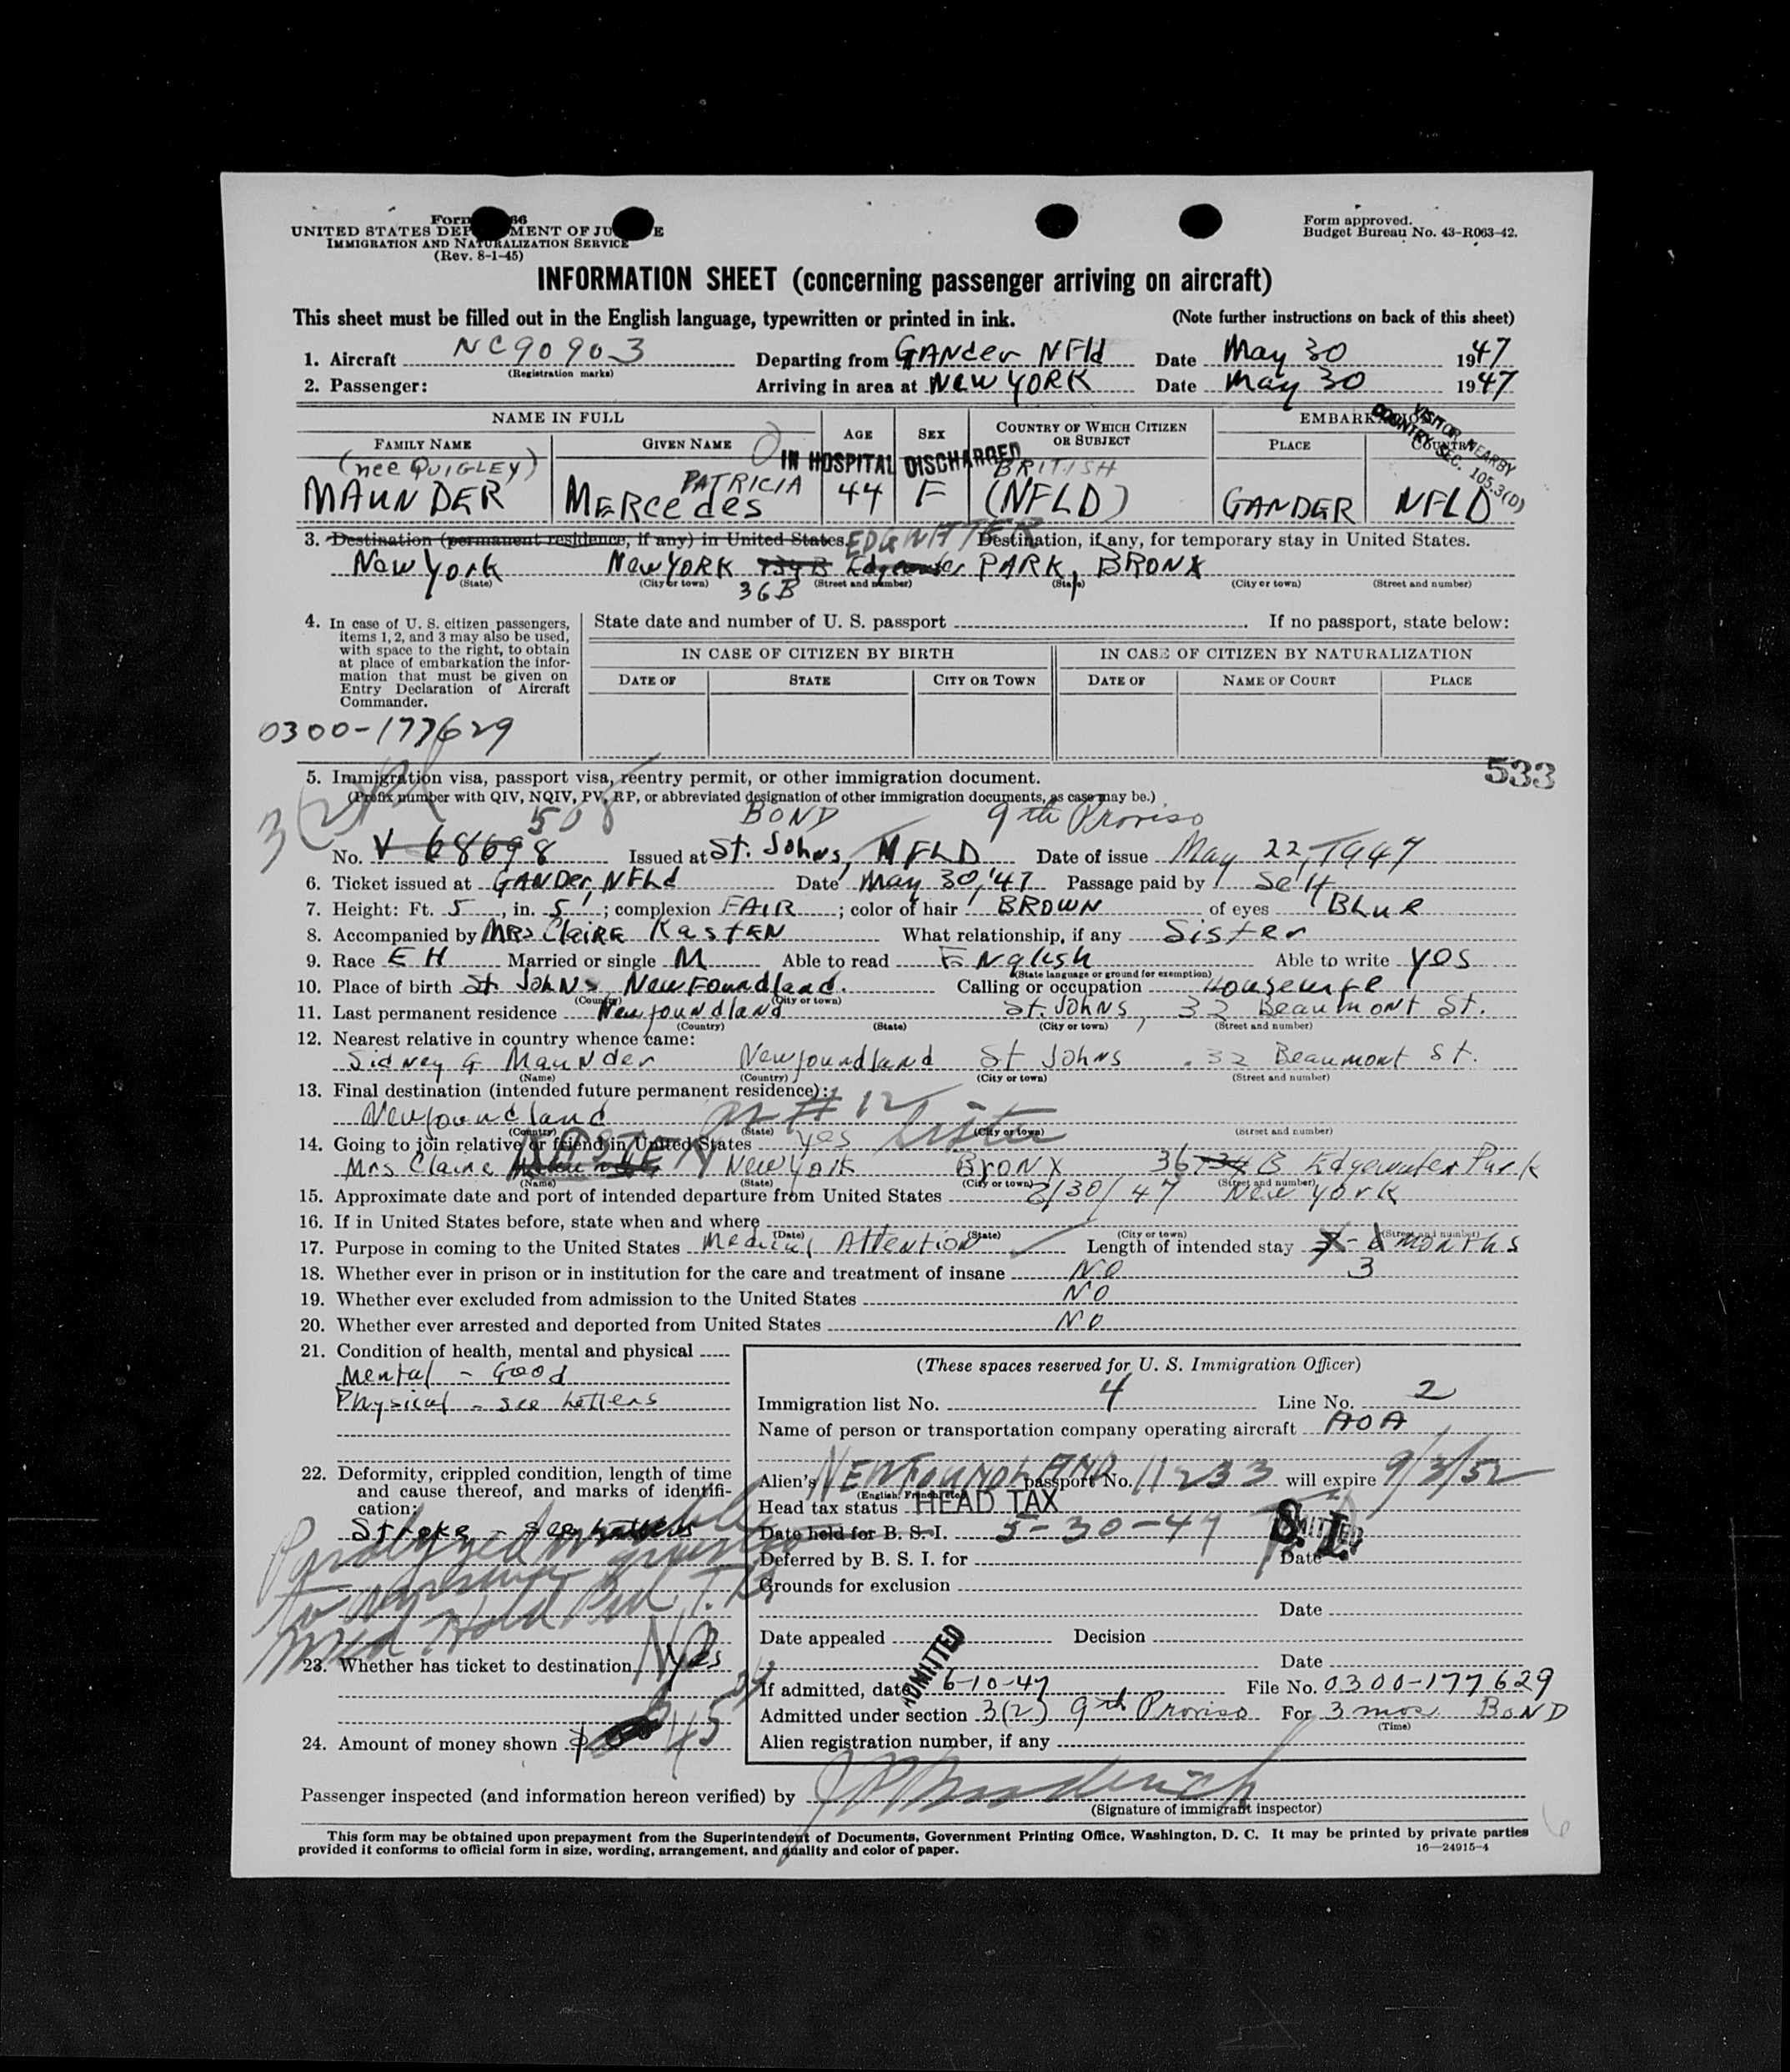 Form 66
UNITED STATES DEP MENT OF JU E
IMMIGRATION AND NATURALIZATION SERVICE
(Rev. 8-1-45)
Form approved.
Budget Bureau No. 43-R063-42.
INFORMATION SHEET (concerning passenger arriving on aircraft)
This sheet must be filled out in the English language, typewritten or printed in ink. (Note further instructions on back of this sheet)
1. Aircraft NC90903 Departing from GANder NFld Date May 30 1947
(Registration marks)
2. Passenger: Arriving in area at NEW YORK Date May 30 1947
NAME IN FULL AGE SEX COUNTRY OF WHICH CITIZEN OR SUBJECT EMBARKATION
FAMILY NAME GIVEN NAME PLACE COUNTRY
VISITOR NEARBY
COUNTRY SEC. 105.3(D)
IN HOSPITAL DISCHARGED
(nee QUIGLEY) PATRICIA BRITISH
MAUNDER MERCedes 44 F (NFLD) GANDER NFLD
3. Destination (permanent residence, if any) in United States. EDGWATER Destination, if any, for temporary stay in United States.
New York New YORK 134 B Edgewater PARK, BRONX
(State) (City or town) 36B (Street and number) (State) (City or town) (Street and number)
4. In case of U. S. citizen passengers, items 1, 2, and 3 may also be used, with space to the right, to obtain at place of embarkation the information that must be given on Entry Declaration of Aircraft Commander.
State date and number of U. S. passport If no passport, state below:
IN CASE OF CITIZEN BY BIRTH IN CASE OF CITIZEN BY NATURALIZATION
DATE OF STATE CITY OR TOWN DATE OF NAME OF COURT PLACE
0300-177629
533
5. Immigration visa, passport visa, reentry permit, or other immigration document.
(Prefix number with QIV, NQIV, PV, RP, or abbreviated designation of other immigration documents, as case may be.)
3(2) 508 BOND 9th Proviso
No. V 68698 Issued at St. Johns, NFLD Date of issue May 22, 1947
6. Ticket issued at GANDer, NFLd Date May 30, '47 Passage paid by Self
7. Height: Ft. 5, in. 5; complexion FAIR; color of hair BROWN of eyes Blue
8. Accompanied by MRS ClaiRE KastEN What relationship, if any Sister
9. Race EH Married or single M Able to read ENglish Able to write yes
(State language or ground for exemption)
10. Place of birth St. JohNs, NewFoundland. Calling or occupation Housewife
(Country) (City or town)
11. Last permanent residence Newfoundland St. Johns, 32 Beaumont St.
(Country) (State) (City or town) (Street and number)
12. Nearest relative in country whence came:
Sidney G Maunder Newfoundland St Johns 32 Beaumont St.
(Name) (Country) (City or town) (Street and number)
13. Final destination (intended future permanent residence):
Newfoundland as # 12
(Country) (State) (City or town) (Street and number)
14. Going to join relative or friend in United States yes Sister
Mrs Claire KASTEN New York Bronx 36 134 B Edgewater Park
(Name) (State) (City or town) (Street and number)
15. Approximate date and port of intended departure from United States 8/30/47 New York
16. If in United States before, state when and where
(Date) (State) (City or town) (Street and number)
17. Purpose in coming to the United States Medical Attention Length of intended stay months
3
18. Whether ever in prison or in institution for the care and treatment of insane NO
19. Whether ever excluded from admission to the United States NO
20. Whether ever arrested and deported from United States NO
21. Condition of health, mental and physical
Mental - Good
Physical - see Letters
22. Deformity, crippled condition, length of time and cause thereof, and marks of identification:
Stroke - see letters
Med Hold
23. Whether has ticket to destination yes No
24. Amount of money shown $ 45
(These spaces reserved for U. S. Immigration Officer)
Immigration list No. 4 Line No. 2
Name of person or transportation company operating aircraft AOA
Alien's NEWFOUNDLAND passport No. 11233 will expire 9/3/52
(English, French, etc.)
Head tax status HEAD TAX
Date held for B. S. I. 5-30-47 S. I.
Deferred by B. S. I. for Date
Grounds for exclusion
Date
Date appealed Decision
Date
ADMITTED
If admitted, date 6-10-47 File No. 0300-177629
Admitted under section 3(2) 9th Proviso For 3 mos BOND
(Time)
Alien registration number, if any
Passenger inspected (and information hereon verified) by
(Signature of immigrant inspector)
This form may be obtained upon prepayment from the Superintendent of Documents, Government Printing Office, Washington, D. C. It may be printed by private parties
provided it conforms to official form in size, wording, arrangement, and quality and color of paper. 16—24915-4